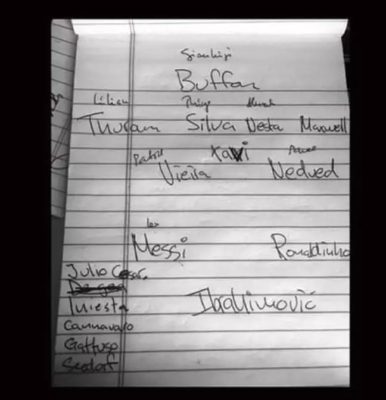 Gianluigi
Buffon
Lilian Thiago
Thuram Silva Nesta Maxwell
Patrick Xavi Pavel
Vieira Nedved
Leo
Messi Ronaldinho
Julio Cesar
Iniesta Ibrahimović
Cannavaro
Gattuso
Seedorf